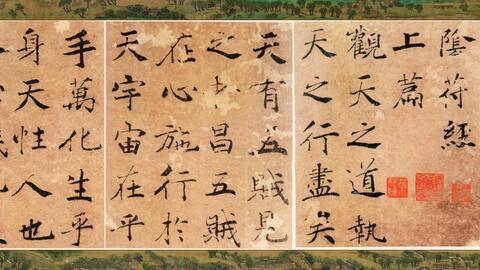 陰符經
上篇
觀天之道執
天之行盡矣
天有五賊見
之昌五賊
在心施行於
天宇宙在乎
手萬化生乎
身天性人也